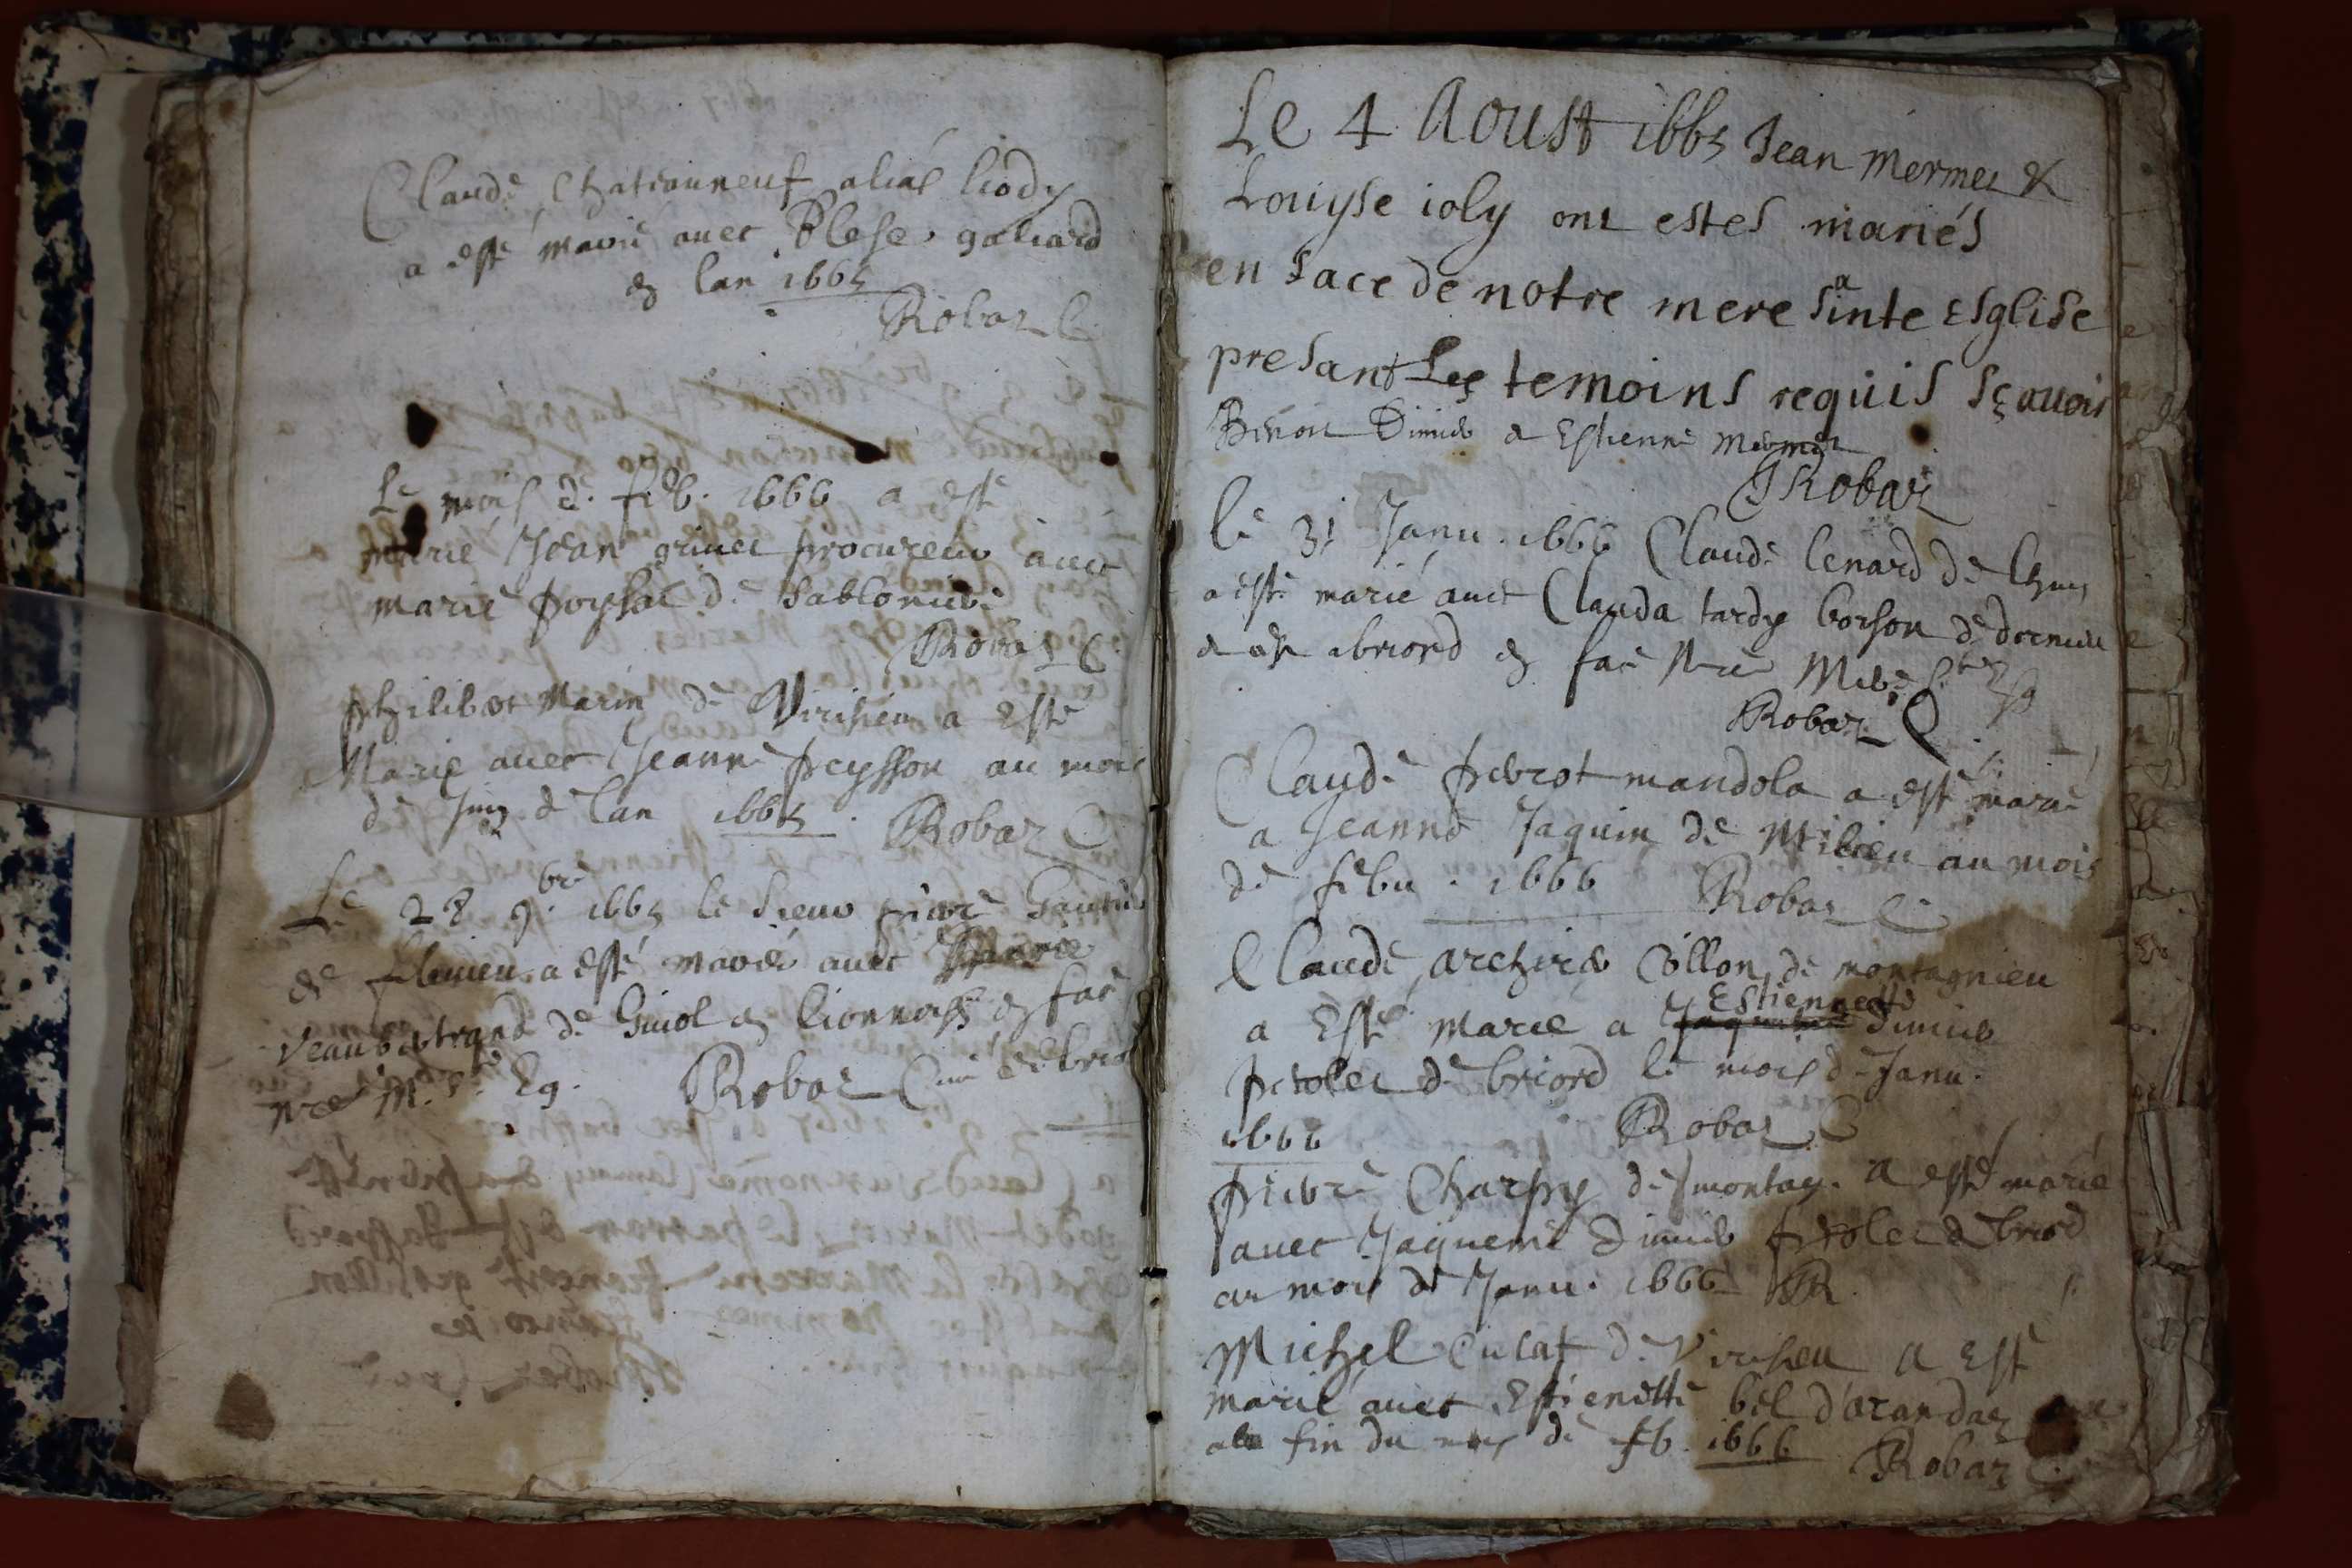 Claude Chatiauneuf alias liody
a esté marié avec Blese galiard
en lan 1665
Robaz C.
Le mois d. feb. 1666 a esté
marié Jean grinet procureur avec
marie poysat de Sabloniere
Robaz C.
philibert Marin de Virisieu a Esté
Marié avec Jeanne peysson au mois
de Juin de lan 1665. Robaz C
Le 28 9.bre 1665 le sieur pierre
de a esté marié avec Marie
de en lionnois en face
nre M. Ste Eg. Robaz Curé de briord
Le 4 Aoust 1665 Jean Mermet &
Louyse ioly ont estes mariés
en face de notre mere sainte Esglise
presant Les temoins requis sçavoir
Benoit Dimier & Estienne Mermet
JRobaz
le 31 Janu. 1666 Claude lenard de
a esté marié avec Clauda tardy borson de
a briord en face Nre Mere Ste Esg
Robaz C.
Claude pierrot mandola a esté marié
a Jeanne Jaquin de au mois
de febu. 1666 Robaz C
Claude archirel Collon de montagnieu
a Esté Marié a Estiennette Dimier
pitolet de briord le mois d Janu.
1666 Robaz C
pierre Charpy de montag. a esté marié
avec Jaqueme Dimier pitolet de briord
au mois de Janu. 1666 R.
Michel Culat d. Virisieu a Esté
marié avec Estienette bel d'arandas
a la fin du mois de feb. 1666 Robaz C.